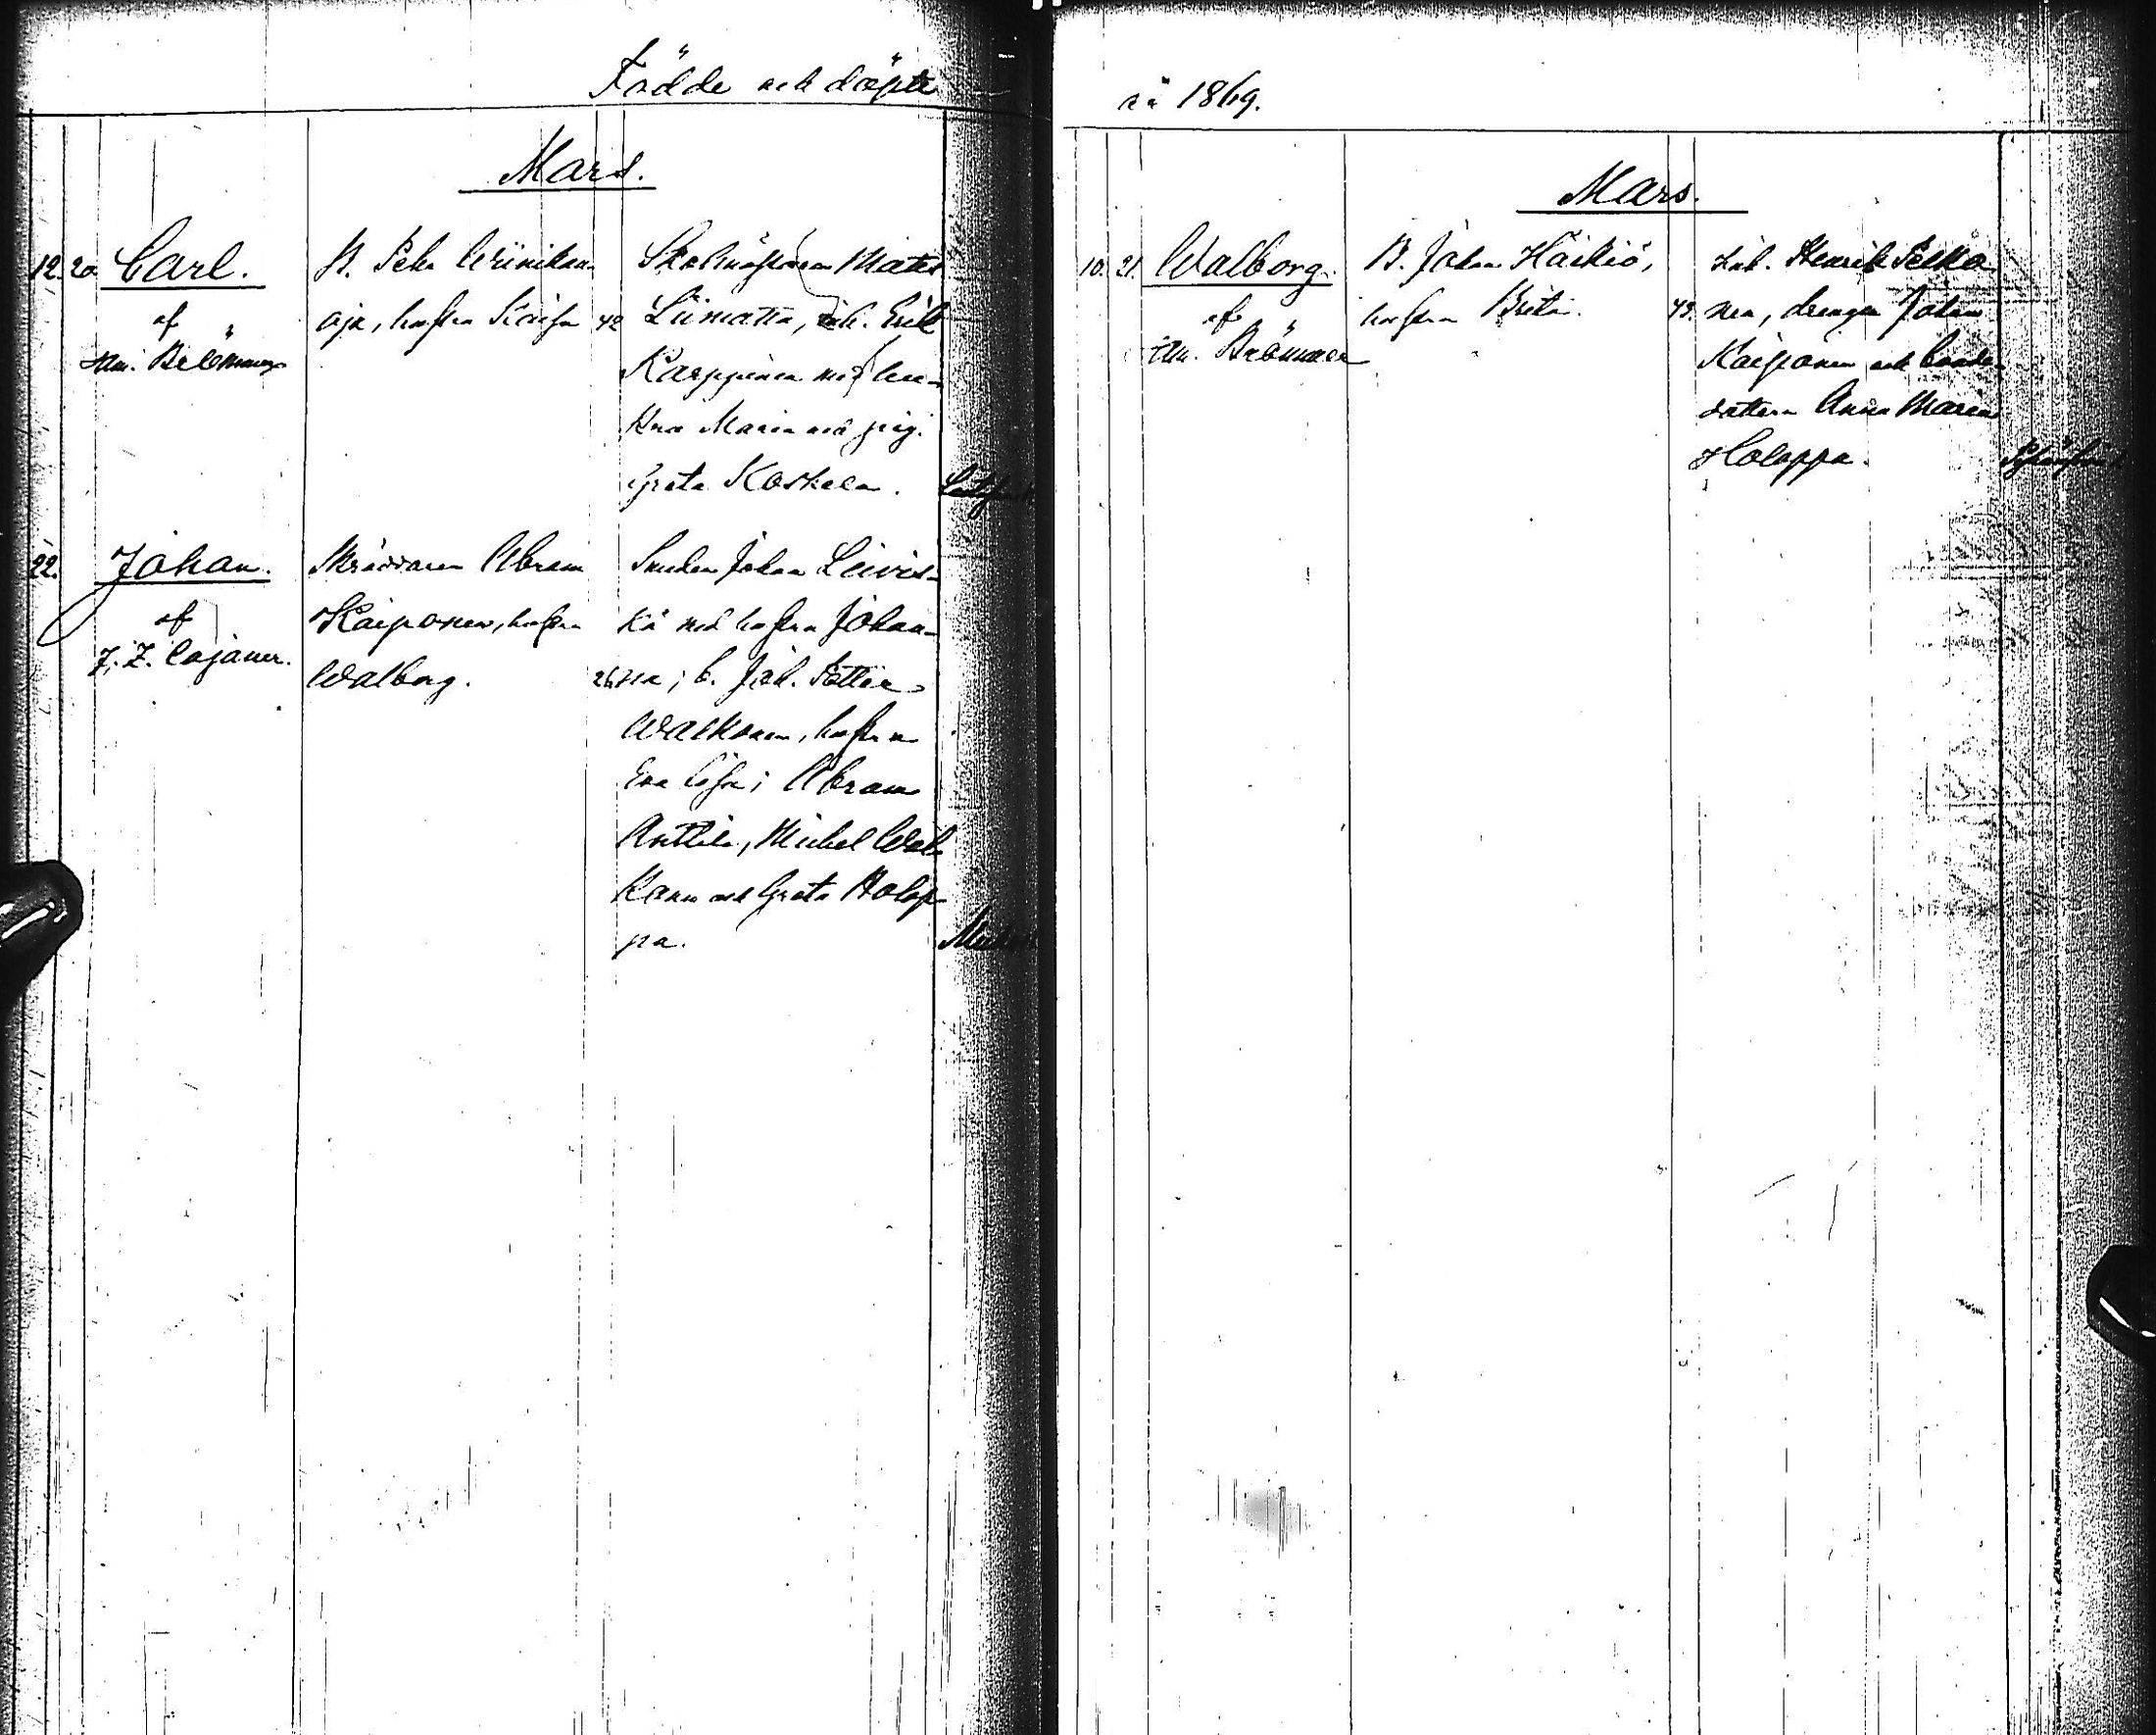 Födde och döpte
Mars.
12. 20. Carl.
af
Am. Brömmer
B. Pehr
oja, hustru Kaisa 42
Skolmästaren Mats
Liimatta, inh. Erik
Karppinen med hu-
stru Maria och pig.
Greta Koskela.
22. Johan.
af
J. Z. Cajaner.
Skräddaren Abram
Kaiponen, hustru
Walborg. 26
Smeden Johan Leivis-
kä med hustru Johan-
na; b. Joh. Petter
Walkonen, hustru
Eva Cajsa; Abram
Anttila, Michel Wal-
konen och Greta Holap-
pa.
år 1869.
Mars.
10. 21. Walborg.
af
Am. Brömmer
B. Johan Häikiö,
hustru Brita. 43.
Inh. Henrik Pelko-
nen, drengen Johan
Kaiponen och bonde-
dottern Anna Maria
Holappa.